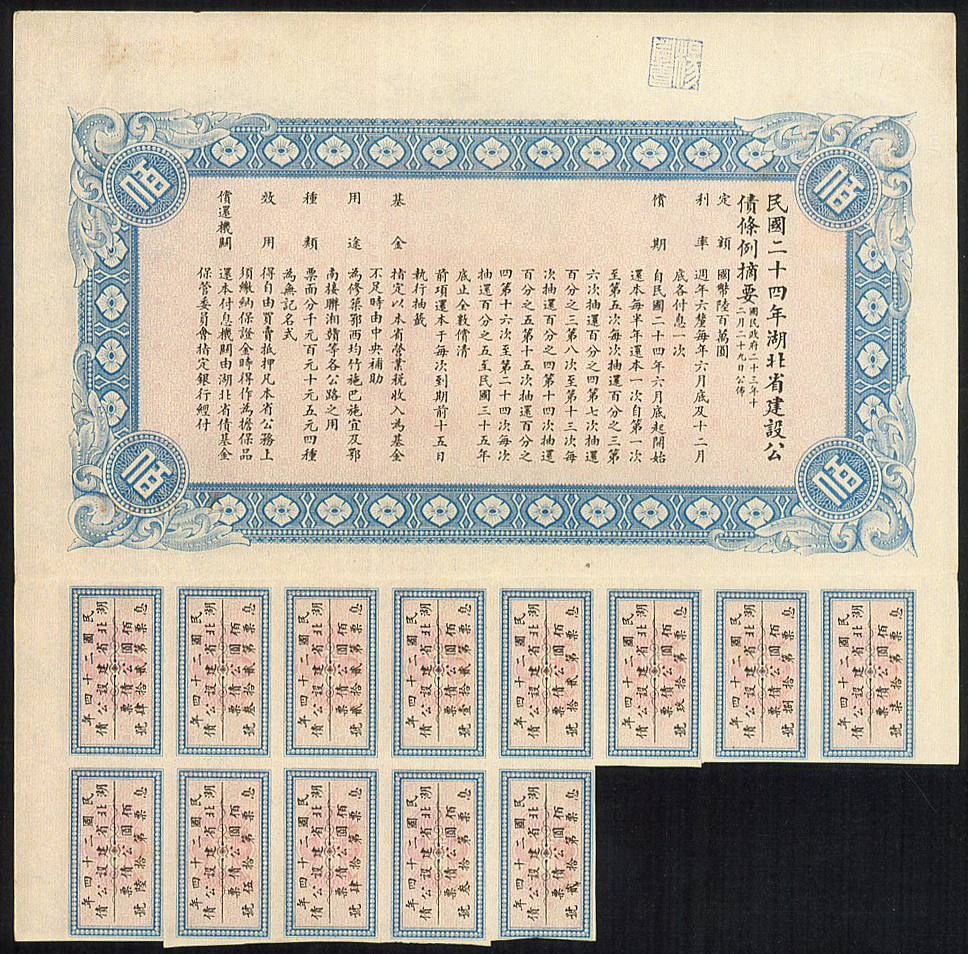 佰
佰
民國二十四年湖北省建設公
債條例摘要
國民政府二十三年十
二月二十九日公佈
定額 國幣陸百萬圓
利率 週年六釐每年六月底及十二月
底各付息一次
償期 自民國二十四年六月底起開始
還本每半年還本一次自第一次
至第五次每次抽還百分之三第
六次抽還百分之四第七次抽還
百分之三第八次至第十三次每
次抽還百分之四第十四次抽還
百分之五第十五次抽還百分之
四第十六次至第二十四次每次
抽還百分之五至民國三十五年
底止全數償清
前項還本于每次到期前十五日
執行抽籤
基金 指定以本省營業税收入為基金
不足時由中央補助
用途 為修築鄂西均竹施巴施宜及鄂
南接聯湘贛等各公路之用
種類 票面分千元百元十元五元四種
為無記名式
效用 得自由買賣抵押凡本省公務上
須繳納保證金時得作為擔保品
償還機關 還本付息機關由湖北省債基金
保管委員會指定銀行經付
佰
佰
息票第拾柒號
佰圓公債票
湖北省建設公債
民國二十四年
息票第拾捌號
佰圓公債票
湖北省建設公債
民國二十四年
息票第拾玖號
佰圓公債票
湖北省建設公債
民國二十四年
息票第貳拾號
佰圓公債票
湖北省建設公債
民國二十四年
息票第貳拾壹號
佰圓公債票
湖北省建設公債
民國二十四年
息票第貳拾貳號
佰圓公債票
湖北省建設公債
民國二十四年
息票第貳拾叁號
佰圓公債票
湖北省建設公債
民國二十四年
息票第貳拾肆號
佰圓公債票
湖北省建設公債
民國二十四年
息票第拾貳號
佰圓公債票
湖北省建設公債
民國二十四年
息票第拾叁號
佰圓公債票
湖北省建設公債
民國二十四年
息票第拾肆號
佰圓公債票
湖北省建設公債
民國二十四年
息票第拾伍號
佰圓公債票
湖北省建設公債
民國二十四年
息票第拾陸號
佰圓公債票
湖北省建設公債
民國二十四年